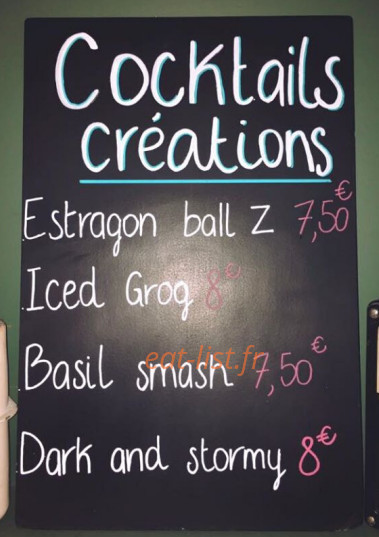 Cocktails
créations
Estragon ball Z 7,50€
Iced Grog 8€
eat-list.fr
Basil smash 7,50€
Dark and stormy 8€